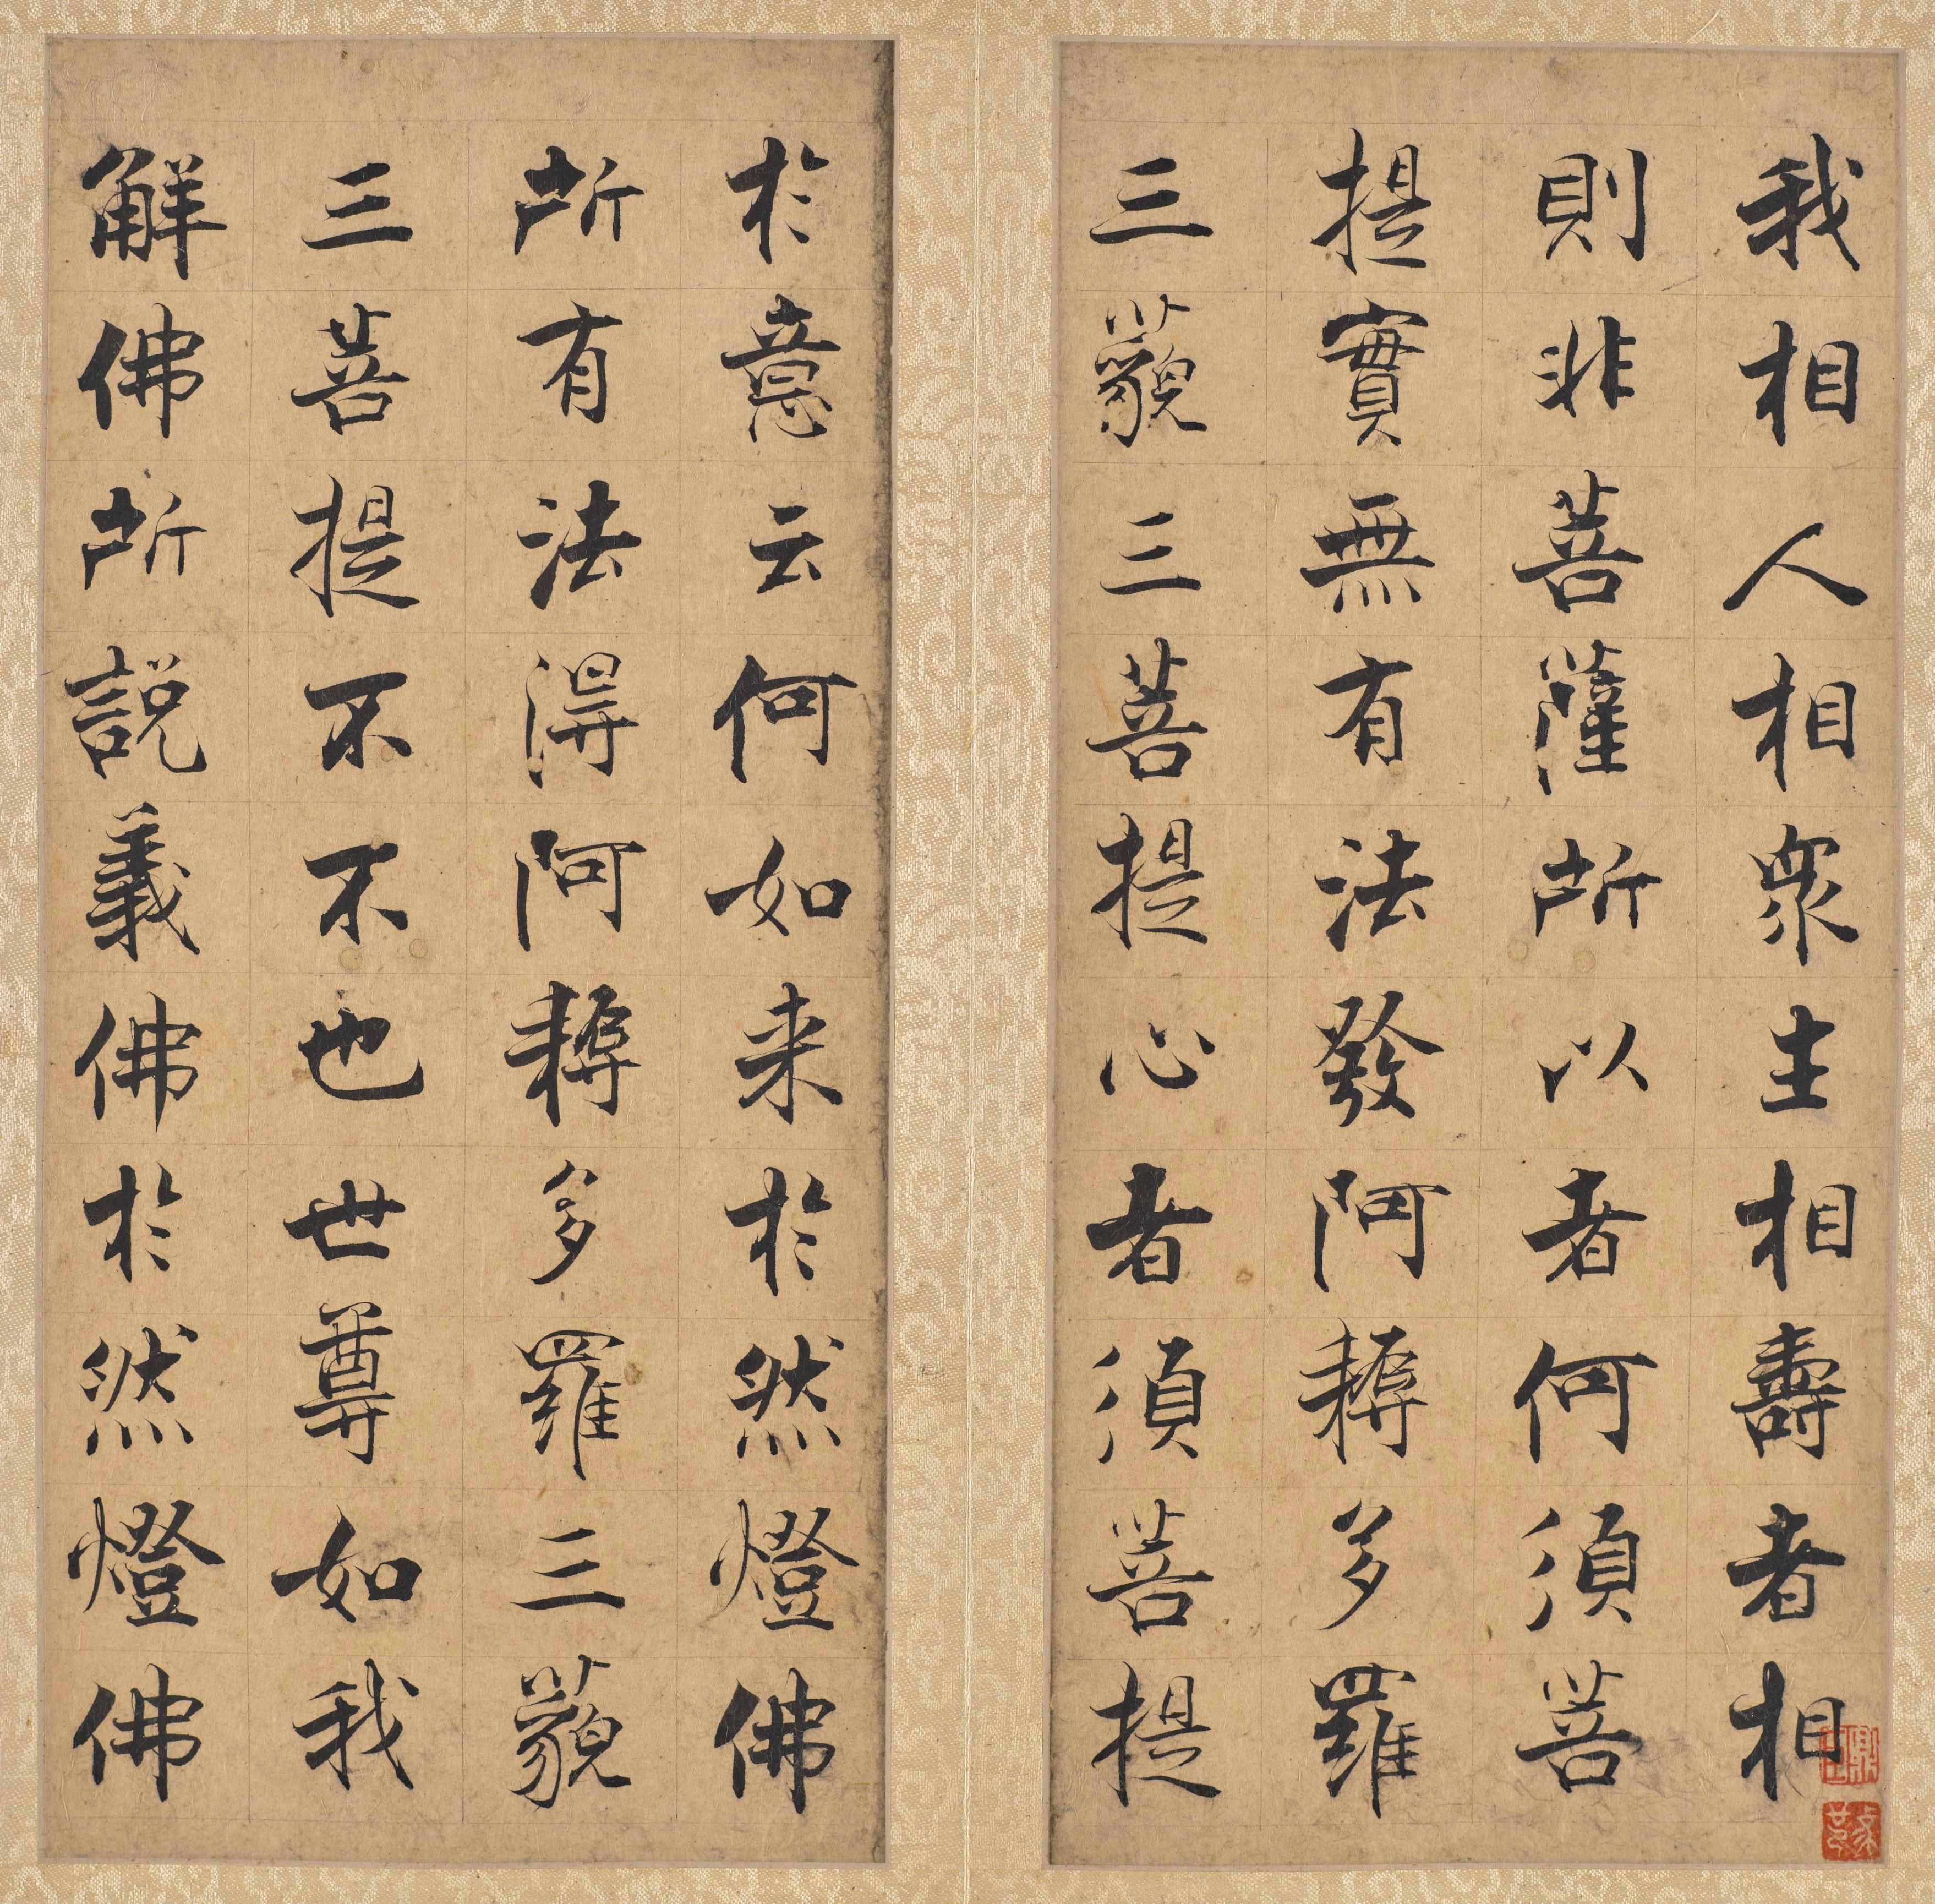 我相人相眾生相壽者相
則非菩薩所以者何須菩
提實無有法發阿耨多羅
三藐三菩提心者須菩提
於意云何如来於然燈佛
所有法得阿耨多羅三藐
三菩提不不也世尊如我
解佛所説義佛於然燈佛